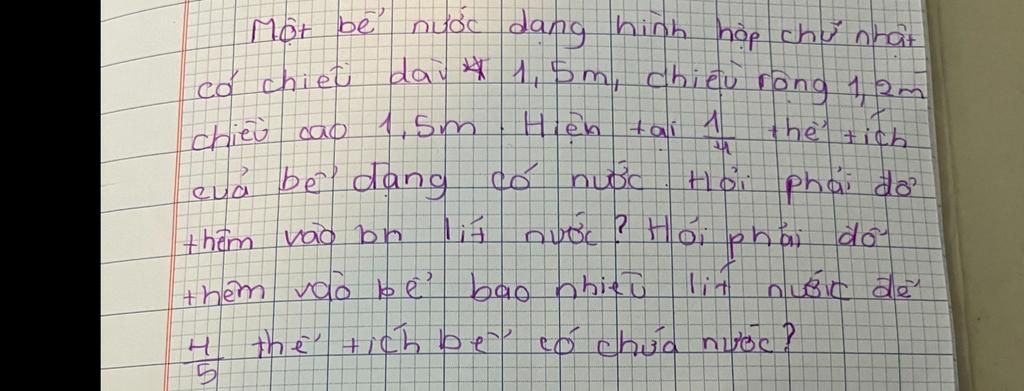 Một bể nước dạng hình hộp chữ nhật
có chiều dài 1,5m, chiều rộng 1,2m
chiều cao 1,5m. Hiện tại 1/4 thể tích
của bể đang có nước. Hỏi phải đổ
thêm vào bn lít nước? Hỏi phải đổ
thêm vào bể bao nhiêu lít nước để
4/5 thể tích bể có chứa nước?